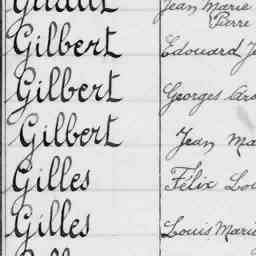 Jean Marie
Pierre
Gilbert Edouard
Gilbert Georges
Gilbert Jean
Gilles Félix
Gilles Louis Marie